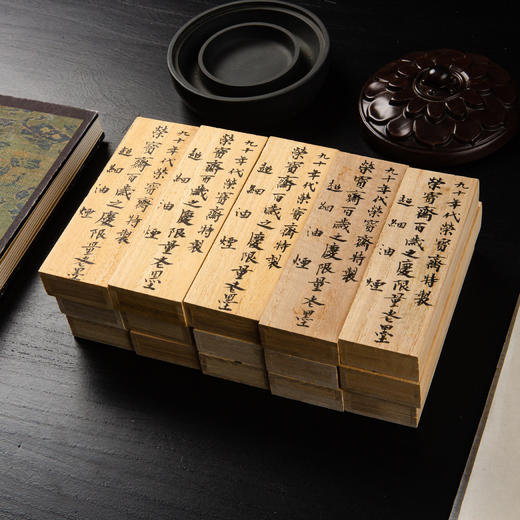 九十年代榮寳齋特製
榮寳齋百歲之慶限量老墨
超細油煙
九十年代榮寳齋特製
榮寳齋百歲之慶限量老墨
超細油煙
九十年代榮寳齋特製
榮寳齋百歲之慶限量老墨
超細油煙
九十年代榮寳齋特製
榮寳齋百歲之慶限量老墨
超細油煙
九十年代榮寳齋特製
榮寳齋百歲之慶限量老墨
超細油煙